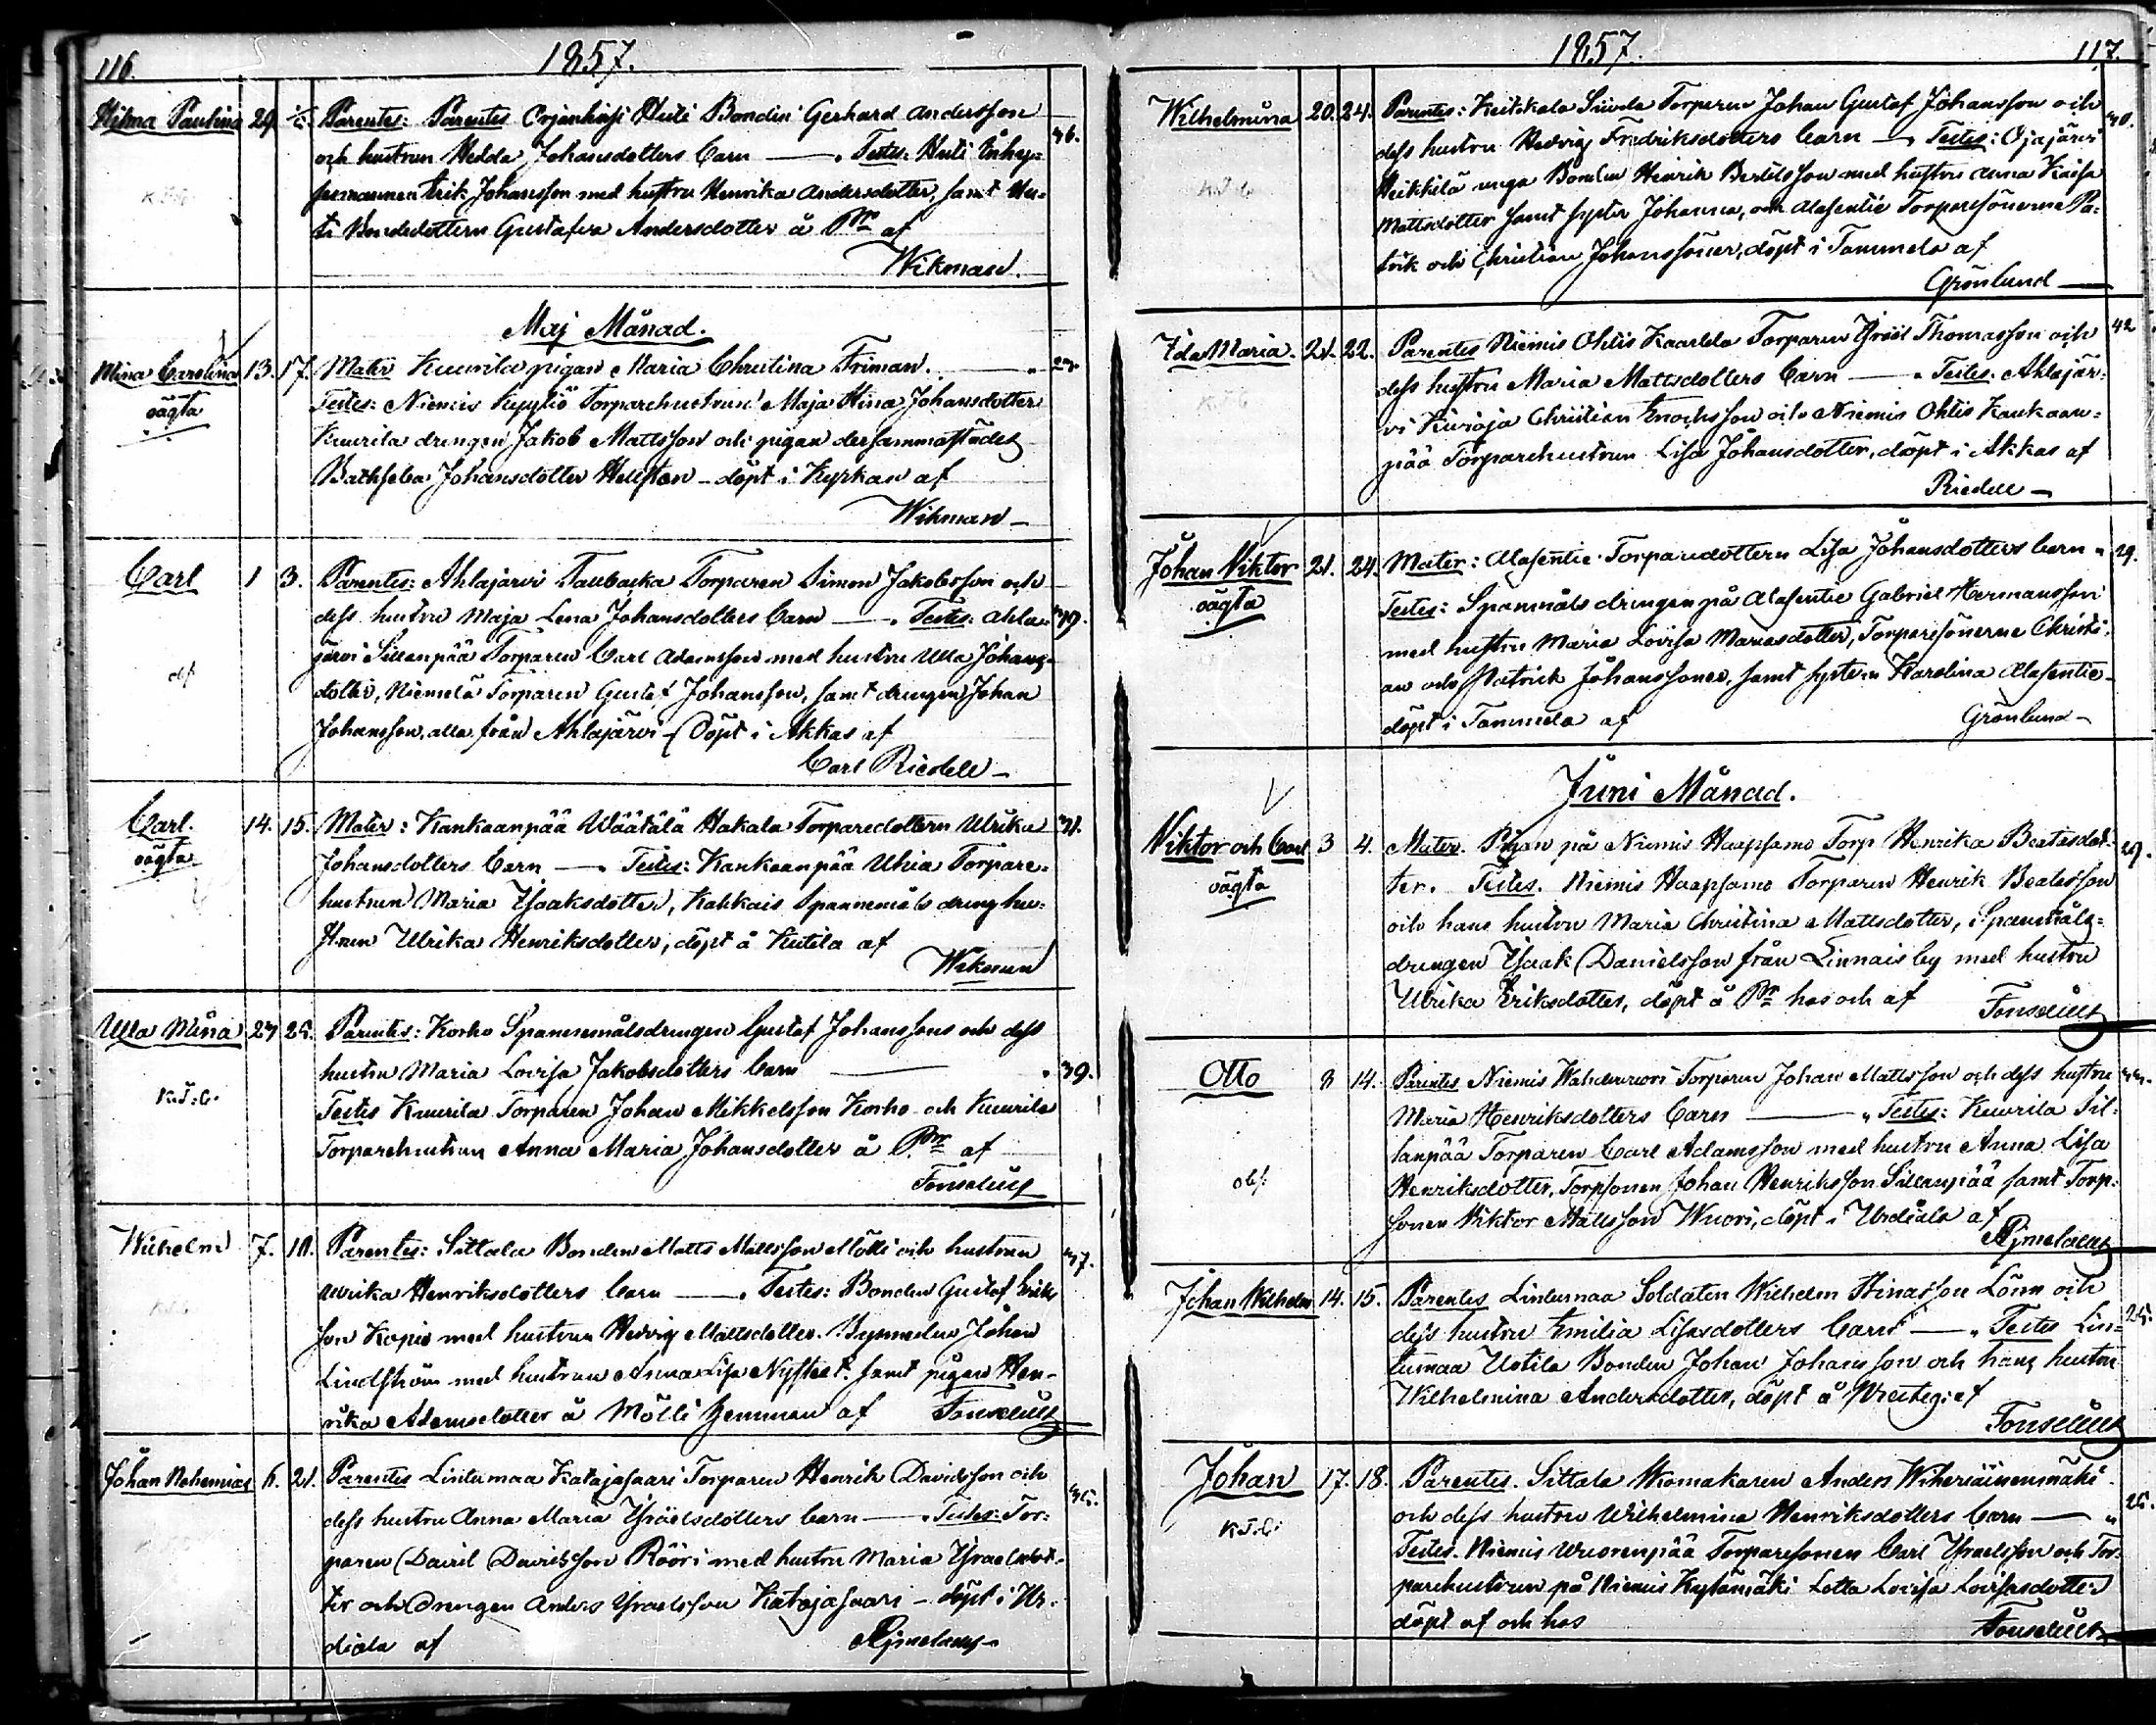 116. 1857.
Hilma Paulina 29. Parentes: Parentes Heili Bonden Gerhard Andersson 36.
och hustrun Hedda Johansdotters barn — Testes: Huti Inhys=
Erik Johansson med hustru Henrika Andersdotter, samt Hu=
ti Bondedottern Gustafva Andersdotter å Pr af
Wikman.
Maj Månad.
Mina Carolina 13. 17. Mater Kuurila pigan Maria Christina Friman.
oägta Testes: Niemis Torparehustrun Maja Stina Johansdotter
Kuurila drengen Jakob Mattsson och pigan dersammastädes
Bathseba Johansdotter Hellsten - döpt i Kyrkan af
Wikman
Carl 1 3. Parentes: Ahlajärvi Torparen Simon Jakobsson och
dess hustru Maja Lena Johansdotters barn — Testes: Ahla= 39.
järvi Sillanpää Torparen Carl Adamsson med hustru Ulla Johans=
dotter, Niemelä Torparen Gustaf Johansson, samt drengen Johan
Johansson, alla från Ahlajärvi - Döpt i Akkas af
Carl Riedell
Carl. 14. 15. Mater: Kankaanpää Wäätälä Hakala Torparedottern Ulrika 31.
oägta Johansdotters barn — Testes: Kankaanpää Uhia Torpare=
hustrun Maria Ysaaksdotter, Kakkais Spannemåls dreng hu=
strun Ulrika Henriksdotter, döpt å Kutila af
Wikman
Ulla Mina 24 25. Parentes: Korho Spannemålsdrengen Gustaf Johanssons och dess
hustru Maria Lovisa Jakobsdotters barn — 39.
K.J.C. Testes Kuurila Torparen Johan Mikkelsson Korho och Kuurila
Torparehustrun Anna Maria Johansdotter å Pr af
Fonselius
Wilhelm 7. 10. Parentes: Sittala Bonden Matts Mattsson Mölli och hustrun 37.
Ulrika Henriksdotters barn — Testes: Bonden Gustaf Eriks
son Kopio med hustrun Hedvig Mattsdotter. Johan
Lindström med hustrun Anna Lisa samt pigan Hen=
rika Adamsdotter å Mölli hemman af Fonselius
Johan Nehemias 6. 21. Parentes Lintumaa Katajasaari Torparen Henrik Davidsson och 35.
dess hustru Anna Maria Ysraelsdotters barn — Testes: Tor=
paren David Davidsson Rööri med hustru Maria Ysraelsdot=
ter och drengen Anders Ysraelsson Katajasaari - döpt i Ur=
diala af
1857. 117.
Wilhelmina 20. 24. Parentes: Keikkala Torparen Johan Gustaf Johansson och 40.
dess hustru Hedvig Fredriksdotters barn — Testes: Ojajärvi
Heikkilä unga Bonden Henrik Bertilsson med hustru Anna Kaisa
Mattsdotter samt syster Johanna, och Alasentie Torparesönerna Pa=
trik och Christian Johanssöner, döpt i Tammela af
Grönlund
Ida Maria. 21. 22. Parentes Niemis Ohlis Kaarlela Torparen Ysrael Thomasson och 42
dess hustru Maria Mattsdotters barn — Testes: Ahlajär=
vi Kivioja Christian Enochsson och Niemis Ohlis Kankaan=
pää Torparehustrun Lisa Johansdotter, döpt i Akkas af
Riedell
Johan Viktor 21. 24. Mater: Alasentie Torparedottern Lisa Johansdotters barn 29.
oägta Testes: Spanmåls drengen på Alasentie Gabriel Hermansson
med hustru Maria Lovisa Mariasdotter, Torparesönerne Christi=
an och Patrick Johanssöner, samt systern Karolina Alasentie
döpt i Tammela af Grönlund
Juni Månad.
Viktor och Carl 3 4. Mater. Pigan på Niemis Haapsamo Torp Henrika Beatasdot= 29.
oägta ter. Testes. Niemis Haapsamo Torparen Henrik Beatasson
och hans hustru Maria Christina Mattsdotter, Spanmåls=
drengen Ysaak Danielsson från Linnais by med hustru
Ulrika Eriksdotter, döpt å Pr hos och af Fonselius
Otto 8 14. Parentes Niemis Torparen Johan Mattsson och dess hustru
Maria Henriksdotters barn — Testes: Kuurila Sil=
lanpää Torparen Carl Adamsson med hustru Anna Lisa
Henriksdotter, Torpsonen Johan Henriksson Sillanpää samt Torp=
sonen Viktor Mattsson Wuori, döpt i Urdiala af
Johan Wilhelm 14. 15. Parentes Lintumaa Soldaten Wilhelm Stinasson Lönn och 25.
dess hustru Emilia Lisasdotters barn — Testes Lin=
tumaa Uotila Bonden Johan Johansson och hans hustru
Wilhelmina Andersdotter, döpt å af
Fonselius
Johan 17. 18. Parentes. Sittala Skomakaren Anders Wiheriäisenmäki
K.J.C. och dess hustru Wilhelmina Henriksdotters barn — 25.
Testes. Niemis Wuorenpää Torparesonen Carl Ysraelsson och Tor=
parehustrun på Niemis Kylämäki Lotta Lovisa Lovisasdotter
döpt af och hos Fonselius